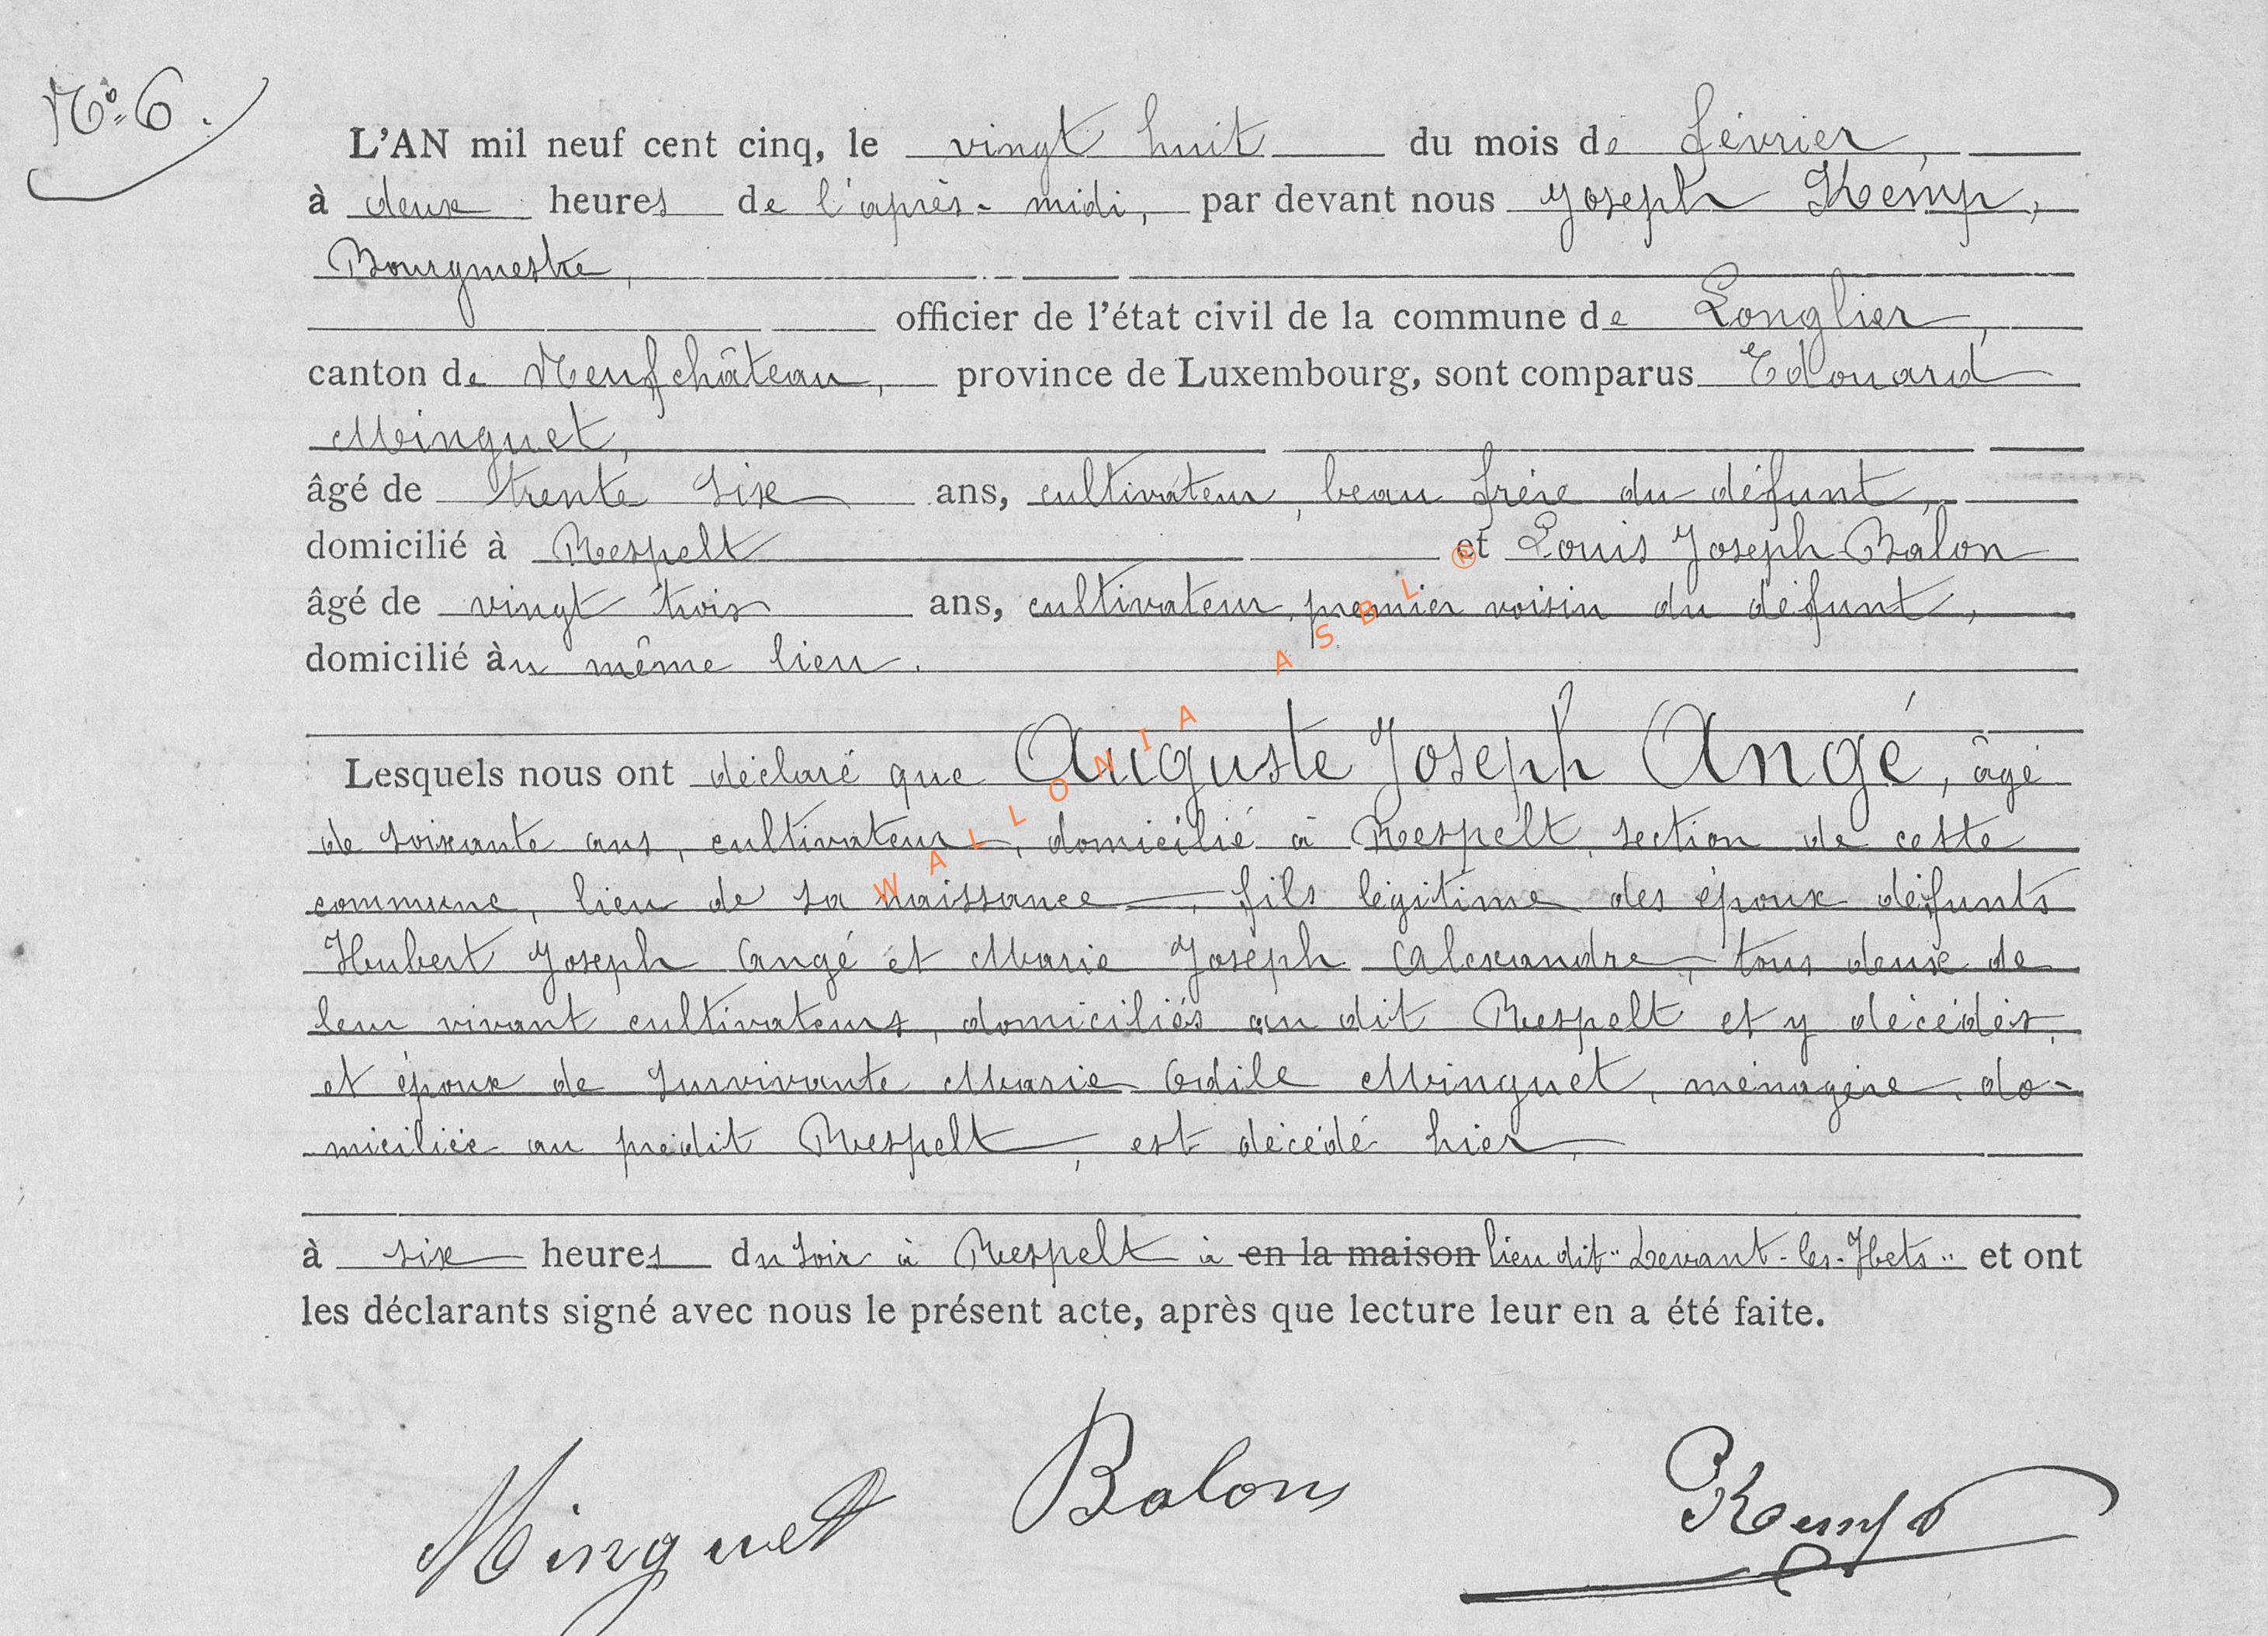 N° 6.
L'AN mil neuf cent cinq, le vingt huit du mois de février,
à deux heures de l'après-midi, par devant nous Joseph Kemp,
Bourgmestre,
officier de l'état civil de la commune de Longlier,
canton de Neufchâteau, province de Luxembourg, sont comparus Edouard
Minguet,
âgé de trente six ans, cultivateur, beau frère du défunt,
domicilié à Respelt et Louis Joseph Balon
âgé de vingt trois ans, cultivateur, premier voisin du défunt,
domicilié àu même lieu.
Lesquels nous ont déclaré que Auguste Joseph Angé, âgé
de soixante ans, cultivateur, domicilié à Respelt, section de cette
commune, lieu de sa naissance, fils légitime des époux défunts
Hubert Joseph Angé et Marie Joseph Alexandre, tous deux de
leur vivant cultivateurs, domiciliés au dit Respelt et y décédés,
et époux de survivante Marie Odile Minguet, ménagère, do-
miciliée au prédit Respelt, est décédé hier,
à six heures du soir à Respelt à en la maison lieu dit "Devant-les-Hets" et ont
les déclarants signé avec nous le présent acte, après que lecture leur en a été faite.
Minguet Balon Kemp
WALLONIA ASBL ®